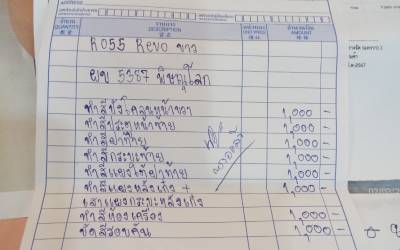 ADDRESS
จำนวน
QUANTITY
รายการ
DESCRIPTION
หน่วยละ
UNIT PRICE
จำนวนเงิน
AMOUNT
R055 Revo ขาว
ผบ 5387 พิษณุโลก
ทำสีบังโคลนหน้าขวา 1,000 -
ทำสีประตูหน้าซ้าย 1,000 -
ทำสีฝาท้าย 1,000 -
ทำสีกระบะซ้าย 1,000 -
ทำสีแผงใต้ฝาท้าย 1,000 -
ทำสีแผงหลังเก๋ง + 1,000 -
เสาแผงกระบะหลังเก๋ง
ทำสีห้องเครื่อง 1,000 -
ขัดสีรอบคัน 1,000 -